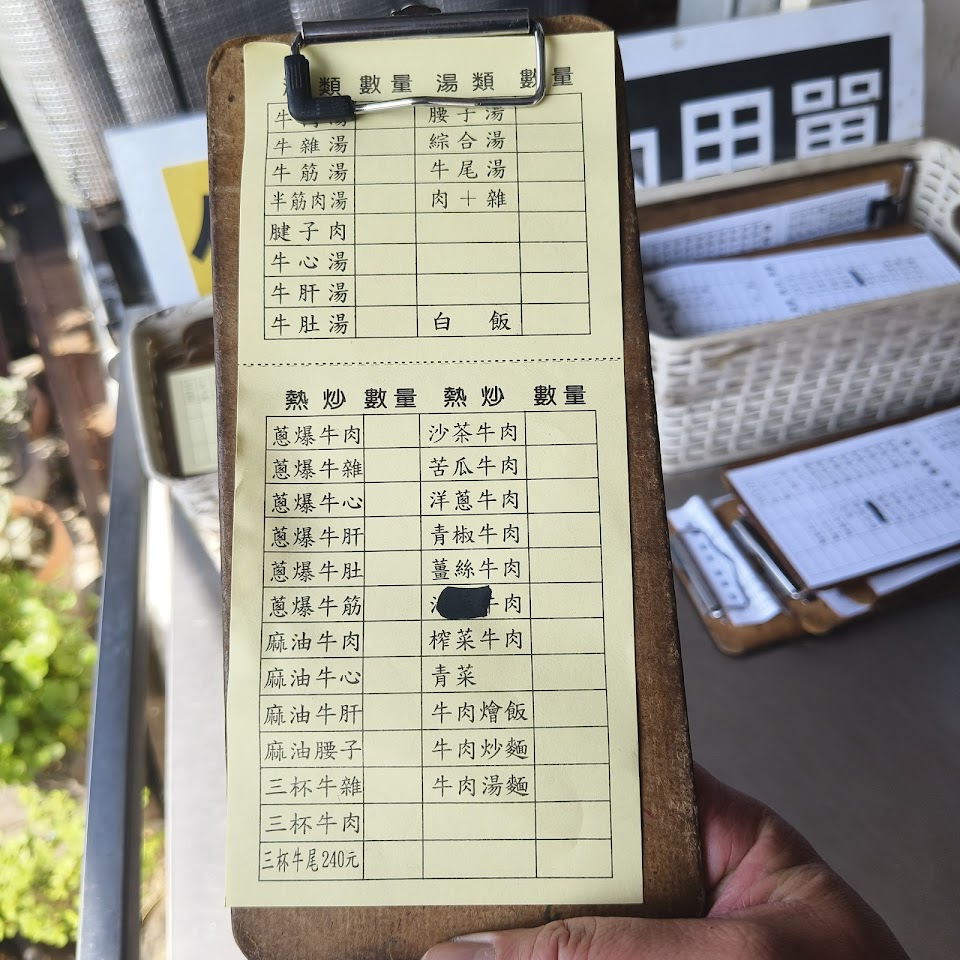 類 數量 湯類 數量
腰子湯
牛雜湯 綜合湯
牛筋湯 牛尾湯
半筋肉湯 肉＋雜
腱子肉
牛心湯
牛肝湯
牛肚湯 白飯
熱炒 數量 熱炒 數量
蔥爆牛肉 沙茶牛肉
蔥爆牛雜 苦瓜牛肉
蔥爆牛心 洋蔥牛肉
蔥爆牛肝 青椒牛肉
蔥爆牛肚 薑絲牛肉
蔥爆牛筋 牛肉
麻油牛肉 榨菜牛肉
麻油牛心 青菜
麻油牛肝 牛肉燴飯
麻油腰子 牛肉炒麵
三杯牛雜 牛肉湯麵
三杯牛肉
三杯牛尾240元
單